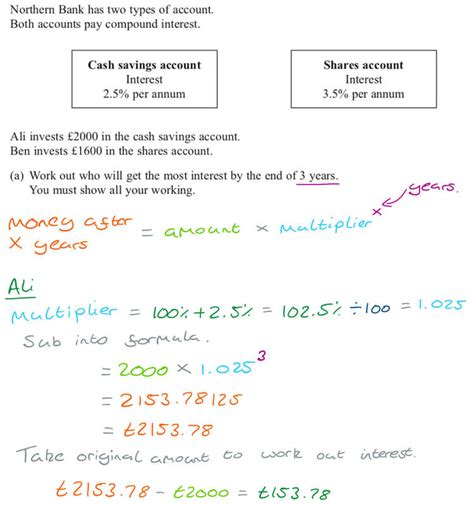 Northern Bank has two types of account.
Both accounts pay compound interest.
Cash savings account
Interest
2.5% per annum
Shares account
Interest
3.5% per annum
Ali invests £2000 in the cash savings account.
Ben invests £1600 in the shares account.
(a) Work out who will get the most interest by the end of 3 years.
You must show all your working.
years.
Money after
x years
= amount × multiplier^x
Ali
Multiplier = 100% + 2.5% = 102.5% ÷100 = 1.025
Sub into formula.
= 2000 × 1.025^3
= 2153.78125
= £2153.78
Take original amount to work out interest.
£2153.78 - £2000 = £153.78